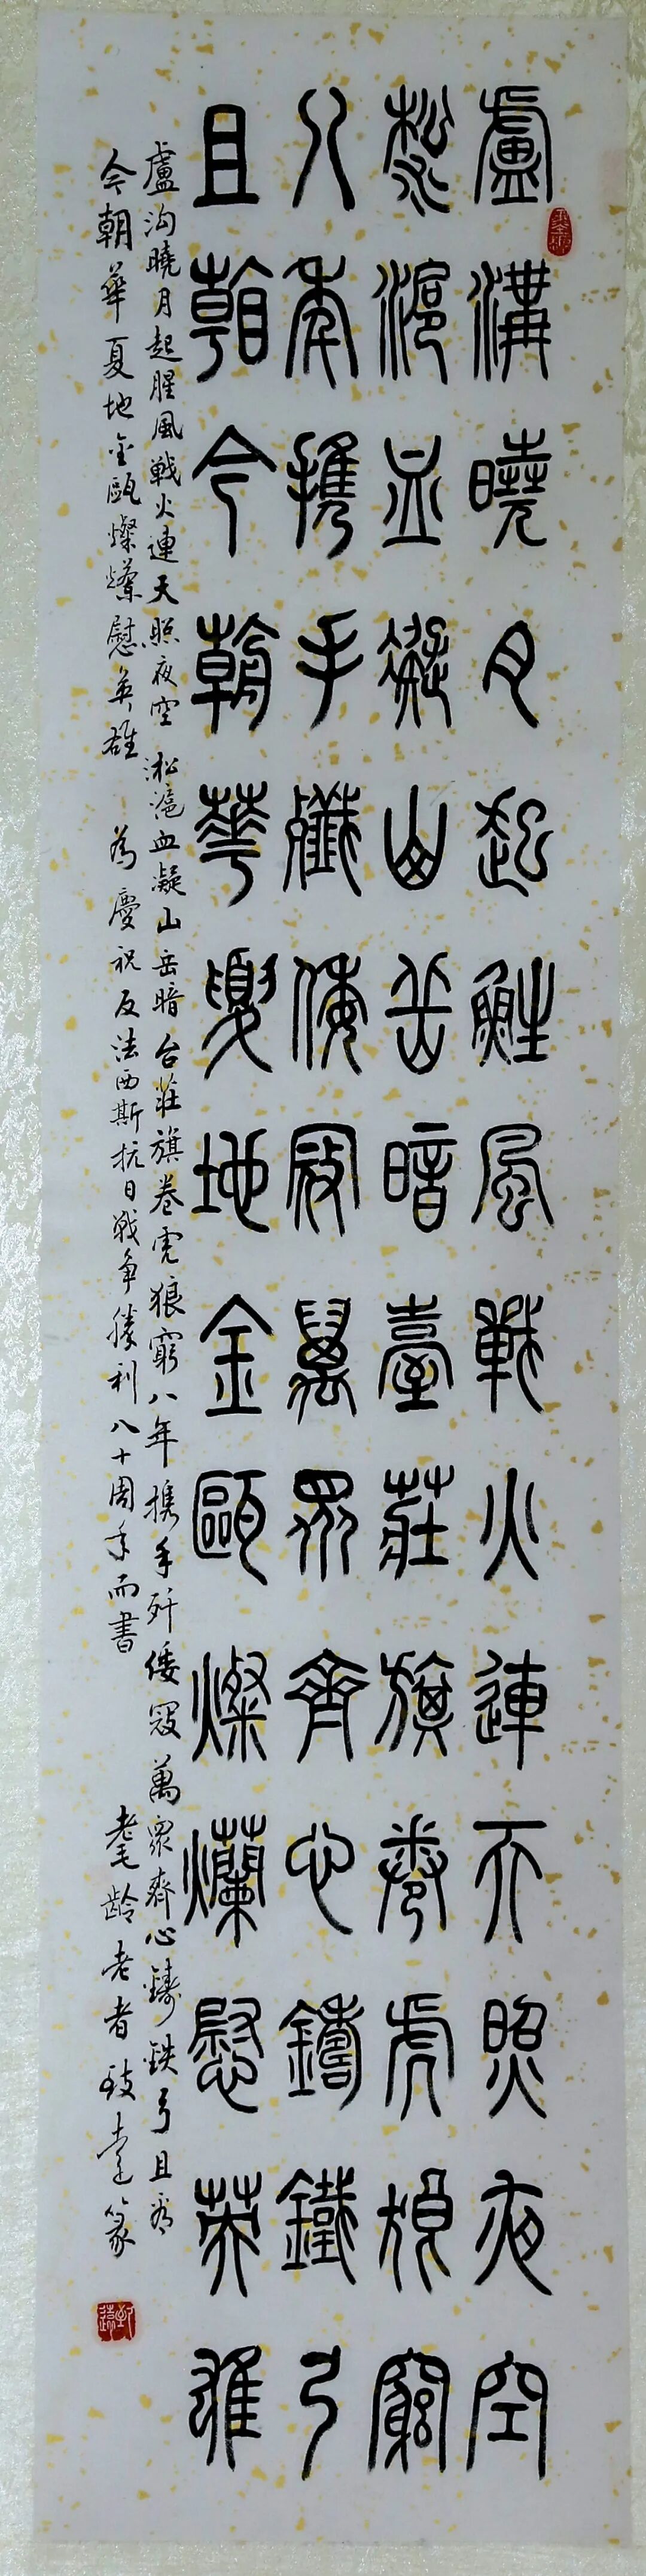 盧溝曉月起鯹風戰火連天照夜空
淞滬血凝山岳暗臺莊旗卷虎狼窮
八年携手殲倭寇萬眾齊心鑄鐵弓
且看今朝華夏地金甌燦爛慰英雄
盧沟曉月起腥風戦火連天照夜空 淞滬血凝山岳暗 台莊旗卷虎狼窮八年携手歼倭寇萬眾齊心鑄鉄弓且看
今朝華夏地金甌燦爛慰英雄 為慶祝反法西斯抗日戦争勝利八十周年而書 耄齡老者致遠篆